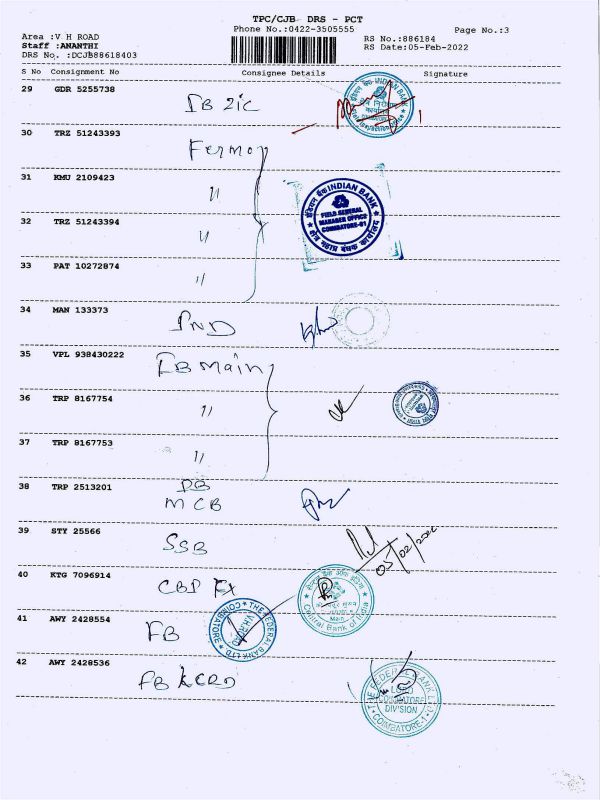 TPC/CJB DRS - PCT
Phone No.:0422-3505555
Page No.:3
Area :V H ROAD
RS No.:886184
Staff :ANANTHI
RS Date:05-Feb-2022
DRS No. :DCJB88618403
S No Consignment No Consignee Details Signature
29 GDR 5255738
INDIAN BANK
30 TRZ 51243393
31 KMU 2109423 "
INDIAN BANK
FIELD GENERAL
MANAGER OFFICE
COIMBATORE-01
32 TRZ 51243394 "
33 PAT 10272874 "
34 MAN 133373
35 VPL 938430222
Main
36 TRP 8167754 "
37 TRP 8167753 "
38 TRP 2513201
MCB
39 STY 25566
SSB
05/02/2022
40 KTG 7096914
Central Bank of India
Main
41 AWY 2428554
FB
THE FEDERAL BANK LTD.
COIMBATORE
42 AWY 2428536
THE FEDERAL BANK
COIMBATORE
DIVISION
COIMBATORE-1